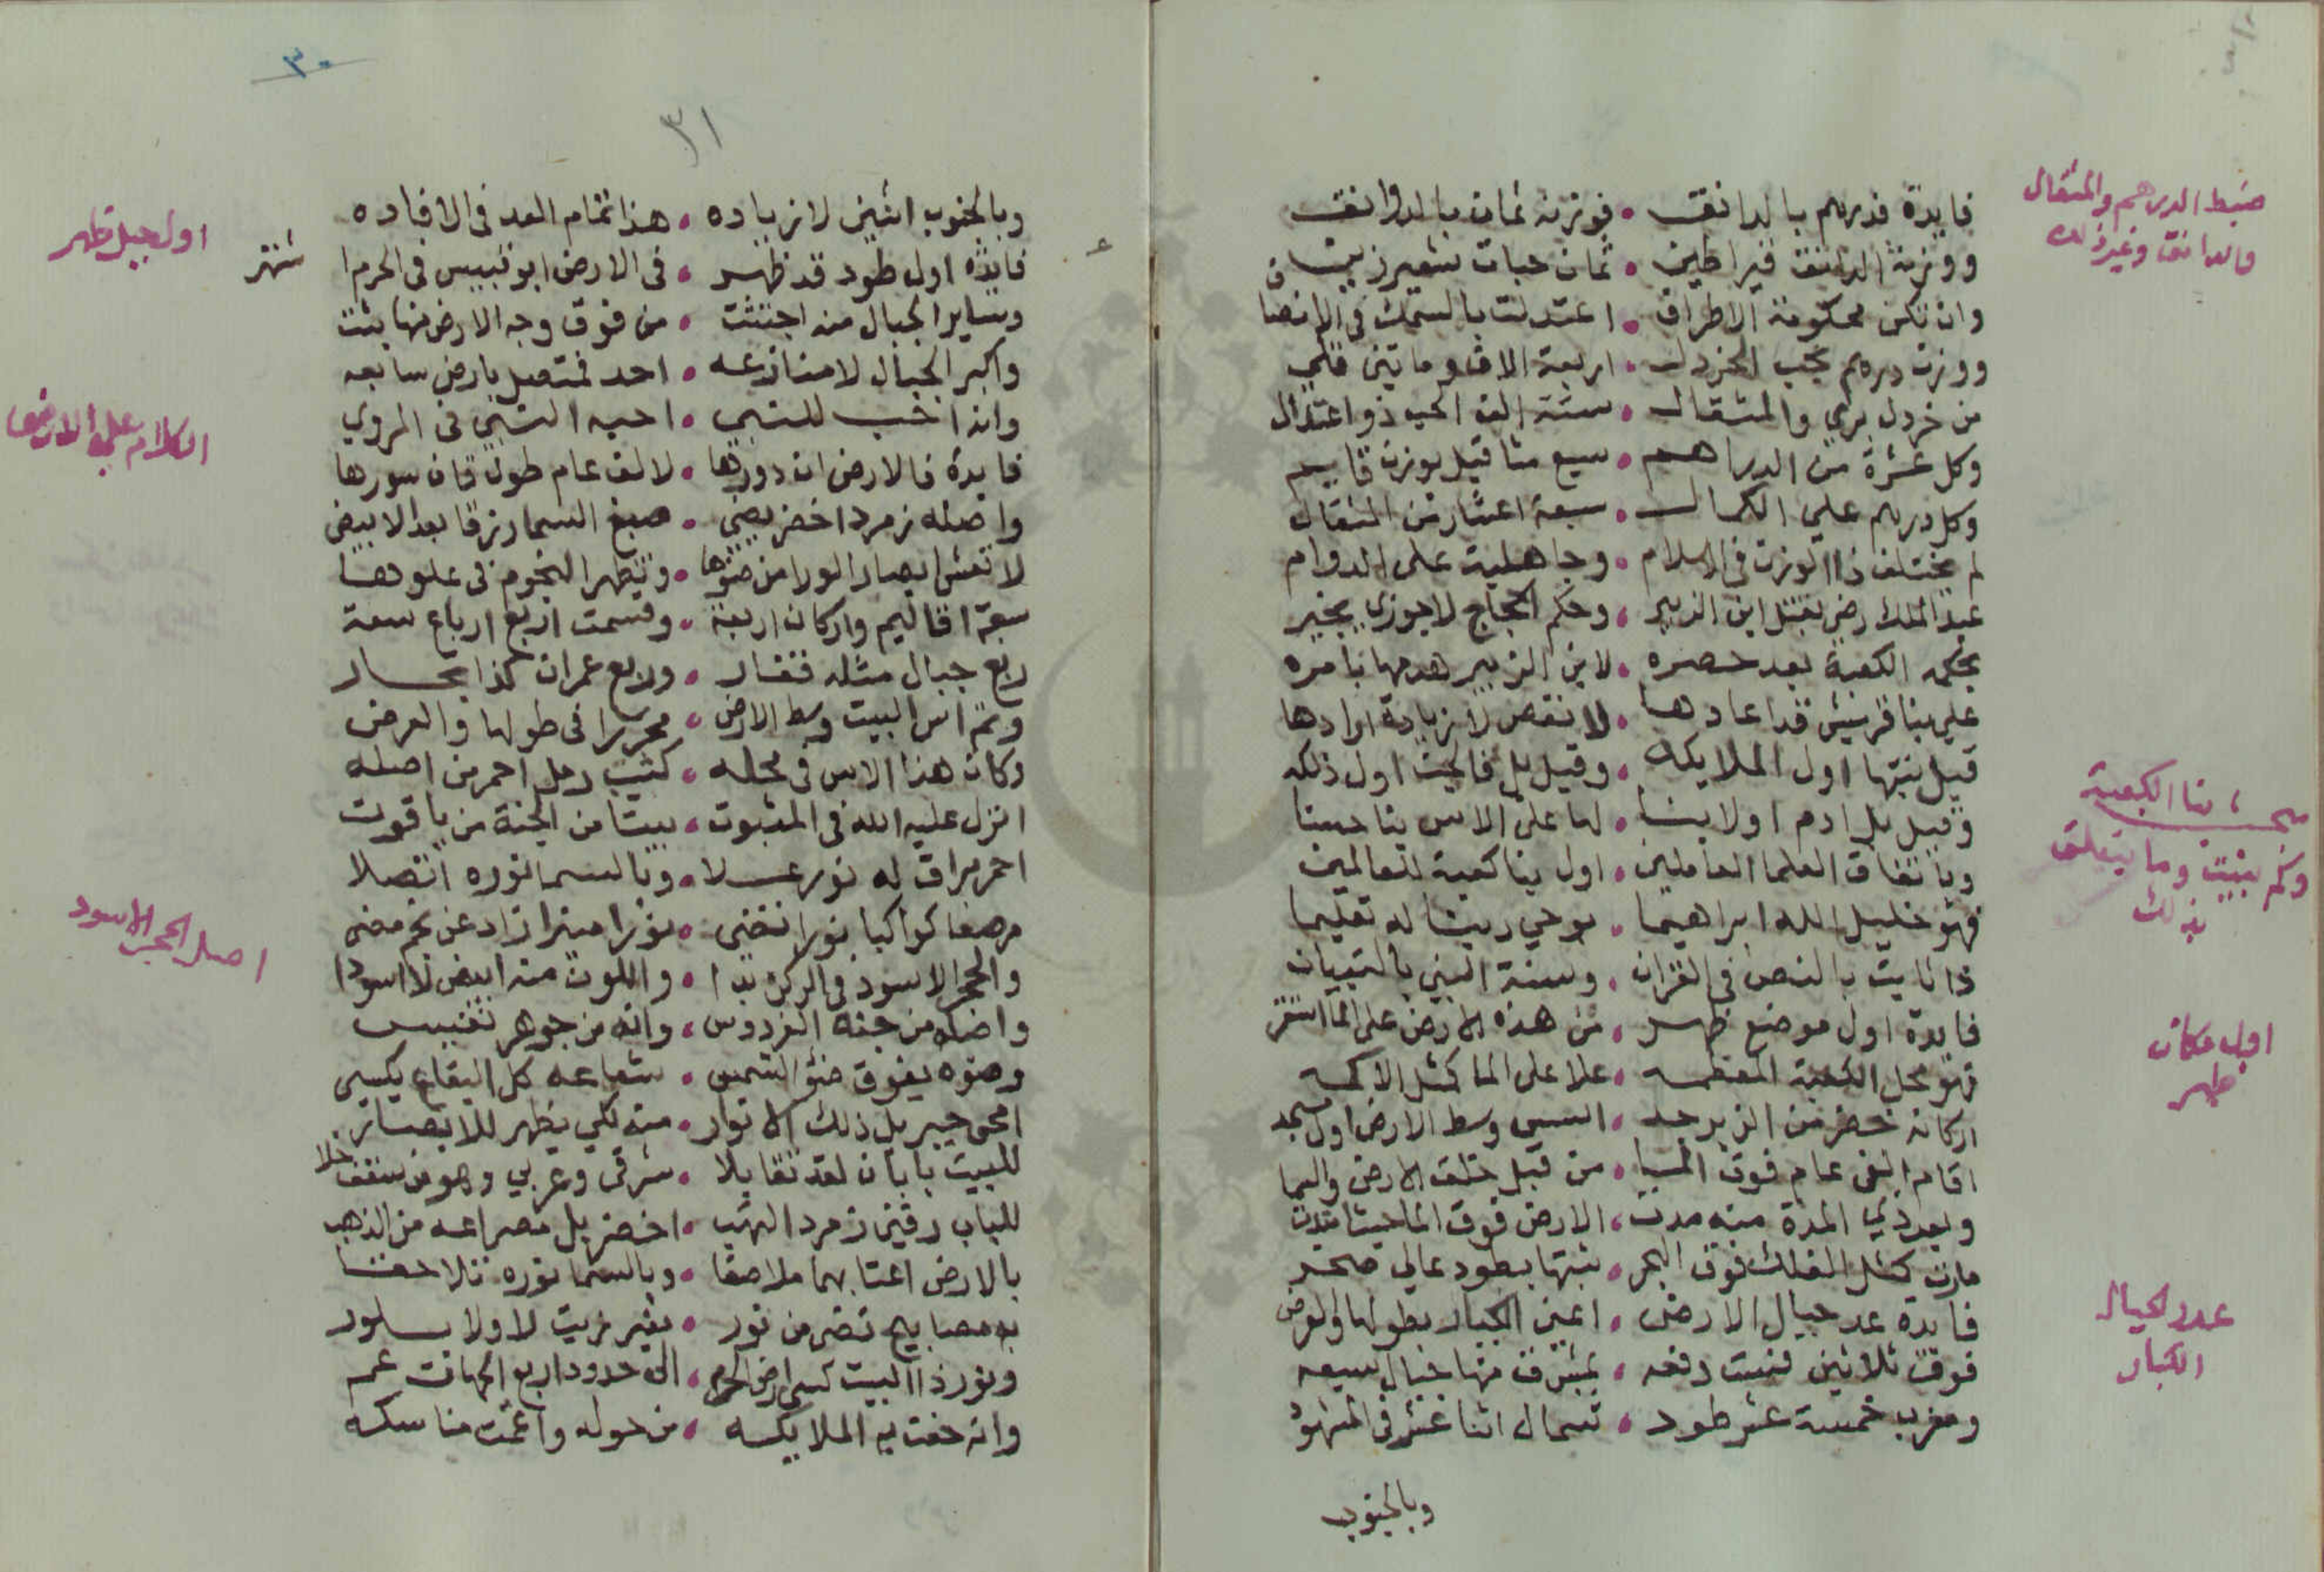 ضبط الدرهم والمثقال
والدانق وغير ذلك
فايدة فدرهم بالدانق • فوزنه ثمان بالدوانق
ووزنة الدانق قيراطين • ثمان حبات شعير زين
وان تكن محكومة الاطراف • اعتدلت بالسمك في الانصاف
ووزن درهم بحب الخردل • اربعة الاف وماتين
من خردل بري والمثقال • ستة الف الحب ذو اعتدال
وكل عشرة من الدراهم • سبع مثاقيل بوزن قايم
وكل درهم علي الكمال • سبعة اعشار من المثقال
لم يختلف ذا الوزن في الاسلام • وجاهلية على الدوام
عبد الملك رضي بقتل ابن الزبير • وحكم الحجاج لا جوزي بخير
بحكمه الكعبة بعد حصره • لابن الزبير هدمها بامره
علي بنا قريش قد اعادها • لا نقص لا زيادة ارادها
قيل بنتها اول الملايكه • وقيل بل
وقيل بل ادم اولا بنا • لها على الاس بنا حسنا
وباتفاق العلما العاملين • اول بنا كعبة للعالمين
فهو خليل الله ابراهيما • بوحي ربنا له تعليما
ذا ثابت بالنص في القران • وسنة النبي بالتبيان
فايدة اول موضع ظهر • من هذه الارض على الما استقر
فهو محل الكعبة المعظمه • علا على الما كمثل الاكمه
اركانه خضر من الزبرجد • وسط الارض اول مسجد
اقام الفي عام فوق الما • من قبل خلق الارض والسما
وبعد ذي المدة منه مدت • الارض فوق الما حيث امتدت
مارت كمثل الفلك فوق البحر • ثبتها بطود عالي صخر
فايدة عد جبال الارض • اعني الكبار بطولها والعرض
فوق ثلاثين رفعه • بمشرق منها جبال سبعه
ومغرب خمسة عشر طود • شمال اثنا عشر في المشهود
وبالجنوب
بنا الكعبة
وكم بنيت وما يتعلق
بذلك
اول مكان
ظهر
عدد الجبال
الكبار
٣٠
٣١
وبالجنوب اثنين لا زياده • هذا تمام العد في الافاده
فايده اول طود قد ظهر • في الارض ابو قبيس في الحرم اشتهر
وساير الجبال منه اجتثت • من فوق وجه الارض منها بثت
واكبر الجبال لا منازعه • احد فمتصل بارض سابعه
وانه احب للنبي • احبه النبي في المروي
فايدة فالارض ان دورها • لالف عام طول قاف سورها
واصله زمرد اخضر يضي • صبغ السما زرقا بعد الابيض
لا تغش ابصار الورا من ضوها • وتظهر النجوم في علوها
سبعة اقاليم واركان اربعة • وقسمت اربع ارباع سعة
ربع جبال مثله قفار • وربع عمران كذا بحار
وتم اس البيت وسط الارض • محررا في طولها والعرض
وكان هذا الاس في محله • كثيب رمل احمر من اصله
انزل عليه الله في المثبوت • بيتا من الجنة من ياقوت
احمر براق له نور علا • وبالسما نوره اتصلا
مرصعا كواكبا نورا تضي • نورا منيرا زاد عن نجم مضي
والحجر الاسود في الركن بدا • واللون منه ابيض لا اسودا
واصله من جنة الفردوس • وانه من جوهر نفيس
وضوه يفوق ضؤ الشمس • شعاعه كل البقاع يكسي
امحى جبريل ذلك الانوار • منه لكي يظهر للابصار
للبيت بابان لقد تقابلا • شرقي وغربي وهو من سقف خلا
للباب دفتين زمرد الهب • اخضر بل مصراعه من الذهب
بالارض اعتابهما ملاصقا • وبالسما نوره تلاحقا
به مصابيح تضي من نور • بغير زيت لا ولا بلور
ونور ذا البيت كسى ارض الحرم • الى حدود اربع الجهات عم
وانه حفت به الملايكه • من حوله واعمت مناسكه
اول جبل ظهر
الكلام علي الارض
اصل الحجر الاسود